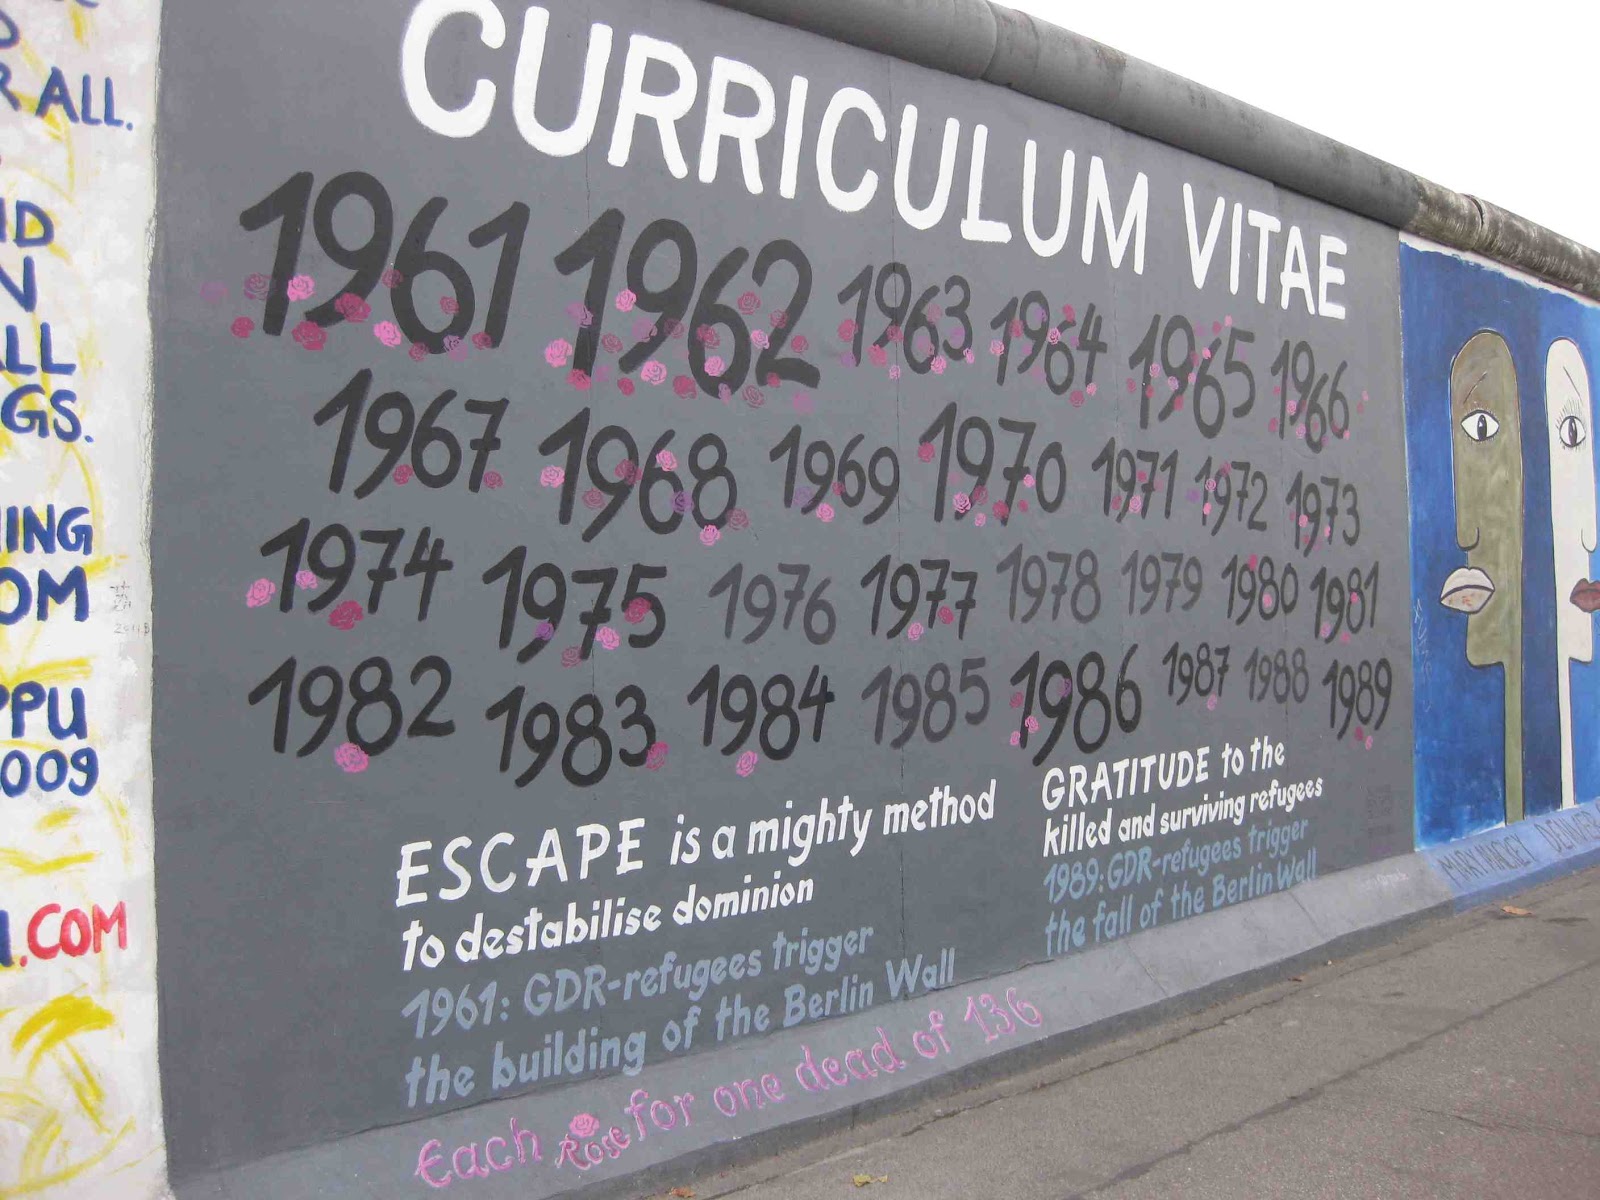 ALL.
ALL
GS.
2009
.COM
CURRICULUM VITAE
1961 1962 1963 1964 1965 1966
1967 1968 1969 1970 1971 1972 1973
1974 1975 1976 1977 1978 1979 1980 1981
1982 1983 1984 1985 1986 1987 1988 1989
ESCAPE is a mighty method
to destabilise dominion
1961: GDR-refugees trigger
the building of the Berlin Wall
GRATITUDE to the
killed and surviving refugees
1989: GDR-refugees trigger
the fall of the Berlin Wall
Each Rose for one dead of 136